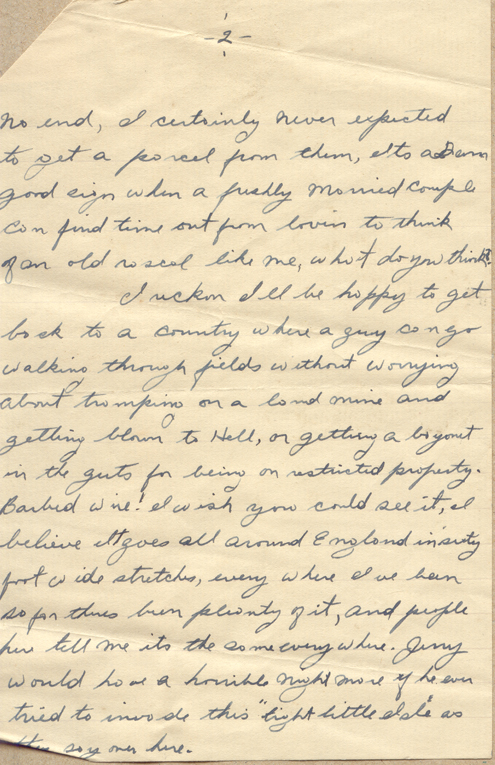 -2-
no end, I certainly never expected
to get a parcel from them, its a Damn
good sign when a freshly married couple
can find time out from lovin to think
of an old rascal like me, what do you think?
I reckon I'll be happy to get
back to a country where a guy can go
walking through fields without worrying
about tramping on a land mine and
getting blown to Hell, or getting a bayonet
in the guts for being on restricted property.
Barbed wire! I wish you could see it, I
believe it goes all around England in sixty
foot wide stretches, every where I've been
so far thers been plenty of it, and people
here tell me its the same every where. Jerry
would have a horrible night mare if he ever
tried to invade this "tight little isle" as
they say over here.